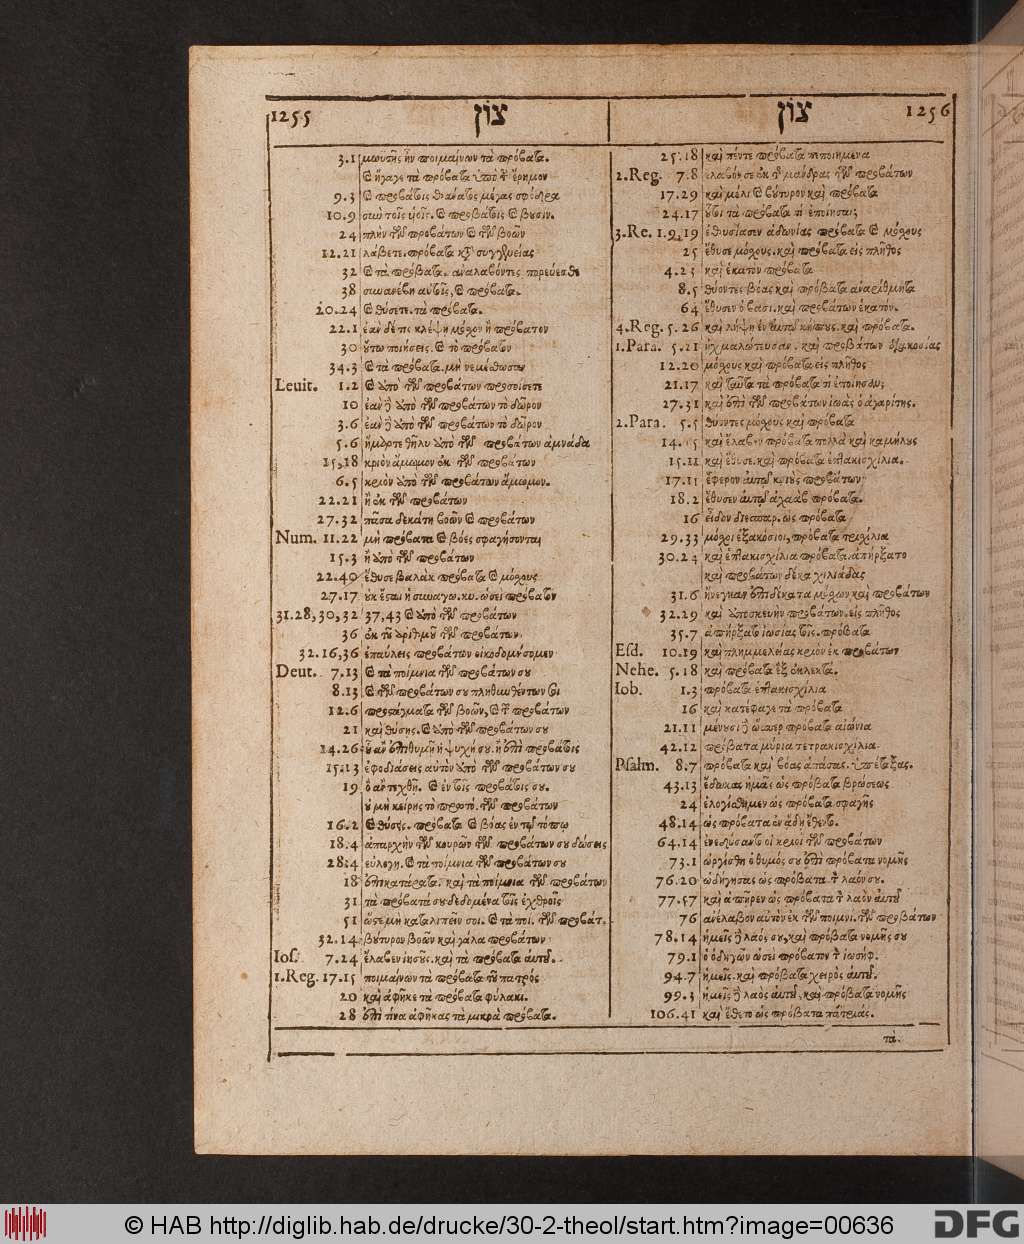 1255 צאן
3.1 μωϋσῆς ἦν ποιμαίνων τὰ πρόβατα.
καὶ ἤγαγε τὰ πρόβατα ὑπὸ τὴν ἔρημον
9.3 καὶ προβάτοις θάνατος μέγας σφόδρα
10.9 σὺν τοῖς υἱοῖς. καὶ προβάτοις καὶ βουσὶν.
24 πλὴν τῶν προβάτων καὶ τῶν βοῶν
12.21 λάβετε. πρόβατα κατὰ συγγενείας
32 καὶ τὰ πρόβατα. ἀναλαβόντες πορεύεσθε
38 συνανέβη αὐτοῖς, καὶ πρόβατα.
20.24 καὶ θύσετε. τὰ πρόβατα.
22.1 ἐὰν δέ τις κλέψῃ μόσχον ἢ πρόβατον
30 οὕτω ποιήσεις. καὶ τὸ πρόβατον
34.3 καὶ τὰ πρόβατα. μὴ νεμέσθωσαν
Leuit. 1.2 καὶ ἀπὸ τῶν προβάτων προσοίσετε
10 ἐὰν δὲ ἀπὸ τῶν προβάτων τὸ δῶρον
3.6 ἐὰν δὲ ἀπὸ τῶν προβάτων τὸ δῶρον
5.6 ἥμαρτε θῆλυ ἀπὸ τῶν προβάτων ἀμνάδα
15,18 κριὸν ἄμωμον ἐκ τῶν προβάτων
6.5 κριὸν ἀπὸ τῶν προβάτων ἄμωμον.
22.21 ἢ ἐκ τῶν προβάτων
27.32 πᾶσα δεκάτη βοῶν καὶ προβάτων
Num. 11.22 μὴ πρόβατα καὶ βόες σφαγήσονται
15.3 ἢ ἀπὸ τῶν προβάτων
22.40 ἔθυσε βαλὰκ πρόβατα καὶ μόσχους
27.17 οὐκ ἔσται ἡ συναγω. κυ. ὡσεὶ πρόβατον
31.28,30,32 37,43 καὶ ἀπὸ τῶν προβάτων
36 ἐκ τοῦ ἀριθμοῦ τῶν προβάτων
32.16,36 ἐπαύλεις προβάτων οἰκοδομήσομεν
Deut. 7.13 καὶ τὰ ποίμνια τῶν προβάτων σου
8.13 καὶ τῶν προβάτων σου πληθυνθέντων σοι
12.6 τῶν βοῶν, καὶ τῶν προβάτων
21 καὶ θύσῃς. καὶ ἀπὸ τῶν προβάτων σου
14.26 οὗ ἂν ἐπιθυμῇ ἡ ψυχή σου. ἢ ἐπὶ προβάτοις
15.13 ἐφοδιάσεις αὐτὸν ἀπὸ τῶν προβάτων σου
19 ὃ ἂν τεχθῇ. καὶ ἐν τοῖς προβάτοις σου.
οὐ μὴ κείρῃς τὸ πρωτό. τῶν προβάτων
16.2 καὶ θύσῃς. πρόβατα καὶ βόας ἐν τῷ τόπῳ
18.4 ἀπαρχὴν τῶν κουρῶν τῶν προβάτων σου δώσεις
28.4 εὐλογη. καὶ τὰ ποίμνια τῶν προβάτων σου
18 ἐπικατάρατα. καὶ τὰ ποίμνια τῶν προβάτων
31 τὰ πρόβατά σου δεδομένα τοῖς ἐχθροῖς
51 ὥστε μὴ καταλιπεῖν σοι. καὶ τὰ ποί. τῶν προβάτ.
32.14 βούτυρον βοῶν καὶ γάλα προβάτων
Ios. 7.24 ἔλαβεν ἰησοῦς. καὶ τὰ πρόβατα αὐτοῦ.
1.Reg. 17.15 ποιμαίνων τὰ πρόβατα τοῦ πατρὸς
20 καὶ ἀφῆκε τὰ πρόβατα φύλακι.
28 ἐπὶ τίνα ἀφῆκας τὰ μικρὰ πρόβατα.
צאן 1256
25.18 καὶ πέντε πρόβατα πεποιημένα
2.Reg. 7.8 ἔλαβόν σε ἐκ τῆς μάνδρας τῶν προβάτων
17.29 καὶ μέλι καὶ βούτυρον καὶ πρόβατα
24.17 οὗτοι τὰ πρόβατα τί ἐποίησαν;
3.Re. 1.9,19 ἐθυσίασεν ἀδωνίας πρόβατα καὶ μόσχους
25 ἔθυσε μόσχους. καὶ πρόβατα εἰς πλῆθος
4.23 καὶ ἑκατὸν πρόβατα
8.5 θύοντες βόας καὶ πρόβατα ἀναρίθμητα
64 ἔθυσεν ὁ βασι. καὶ προβάτων ἑκατόν.
4.Reg. 5.26 καὶ λήψῃ ἐν αὐτῷ κήπους. καὶ πρόβατα.
1.Para. 5.21 ᾐχμαλώτευσαν. καὶ προβάτων
12.20 μόσχους καὶ πρόβατα εἰς πλῆθος
21.17 καὶ ταῦτα τὰ πρόβατα τί ἐποίησαν;
27.31 καὶ ἐπὶ τῶν προβάτων ἰωὰς ὁ ἀγαρίτης.
2.Para. 5.5 θύοντες μόσχους καὶ πρόβατα
14.15 καὶ ἔλαβον πρόβατα πολλὰ καὶ καμήλους
15.11 καὶ ἔθυσε. καὶ πρόβατα ἑπτακισχίλια.
17.11 ἔφερον αὐτῷ κριοὺς προβάτων
18.2 ἔθυσεν αὐτῷ ἀχαὰβ πρόβατα.
16 εἶδον διεσπαρ. ὡς πρόβατα
29.33 μόσχοι ἑξακόσιοι, πρόβατα τρισχίλια
30.24 καὶ ἑπτακισχίλια πρόβατα. ἀπήρξατο
καὶ προβάτων δέκα χιλιάδας
31.6 ἤνεγκαν ἐπιδέκατα μόσχων καὶ προβάτων
32.29 καὶ ἀποσκευὴν προβάτων. εἰς πλῆθος
35.7 ἀπήρξατο ἰωσίας τοῖς. πρόβατα
Esd. 10.19 καὶ πλημμελείας κριὸν ἐκ προβάτων
Nehe. 5.18 καὶ πρόβατα ἓξ ἐκλεκτά.
Iob. 1.3 πρόβατα ἑπτακισχίλια
16 καὶ κατέφαγε τὰ πρόβατα
21.11 μένουσι δὲ ὥσπερ πρόβατα αἰώνια
42.12 πρόβατα μύρια τετρακισχίλια
Psalm. 8.7 πρόβατα καὶ βόας ἁπάσας. ὑπέταξας.
43.13 ἔδωκας ἡμᾶς ὡς πρόβατα βρώσεως
24 ἐλογίσθημεν ὡς πρόβατα σφαγῆς
48.14 ὡς πρόβατα ἐν ᾅδῃ ἔθεντο.
64.14 ἐνεδύσαντο οἱ κριοὶ τῶν προβάτων
73.1 ὠργίσθη ὁ θυμός σου ἐπὶ πρόβατα νομῆς
76.20 ὡδήγησας ὡς πρόβατα τὸν λαόν σου.
77.57 καὶ ἀπῆρεν ὡς πρόβατα τὸν λαὸν αὐτοῦ
76 ἀνέλαβον αὐτὸν ἐκ τῶν ποιμνί. τῶν προβάτων
78.14 ἡμεῖς δὲ λαός σου, καὶ πρόβατα νομῆς σου
79.1 ὁ ὁδηγῶν ὡσεὶ πρόβατον τὸν ἰωσήφ.
94.7 ἡμεῖς. καὶ πρόβατα χειρὸς αὐτοῦ.
99.3 ἡμεῖς δὲ λαὸς αὐτοῦ, καὶ πρόβατα νομῆς
106.41 καὶ ἔθετο ὡς πρόβατα πατριάς.
τὰ.
© HAB http://diglib.hab.de/drucke/30-2-theol/start.htm?image=00636
DFG